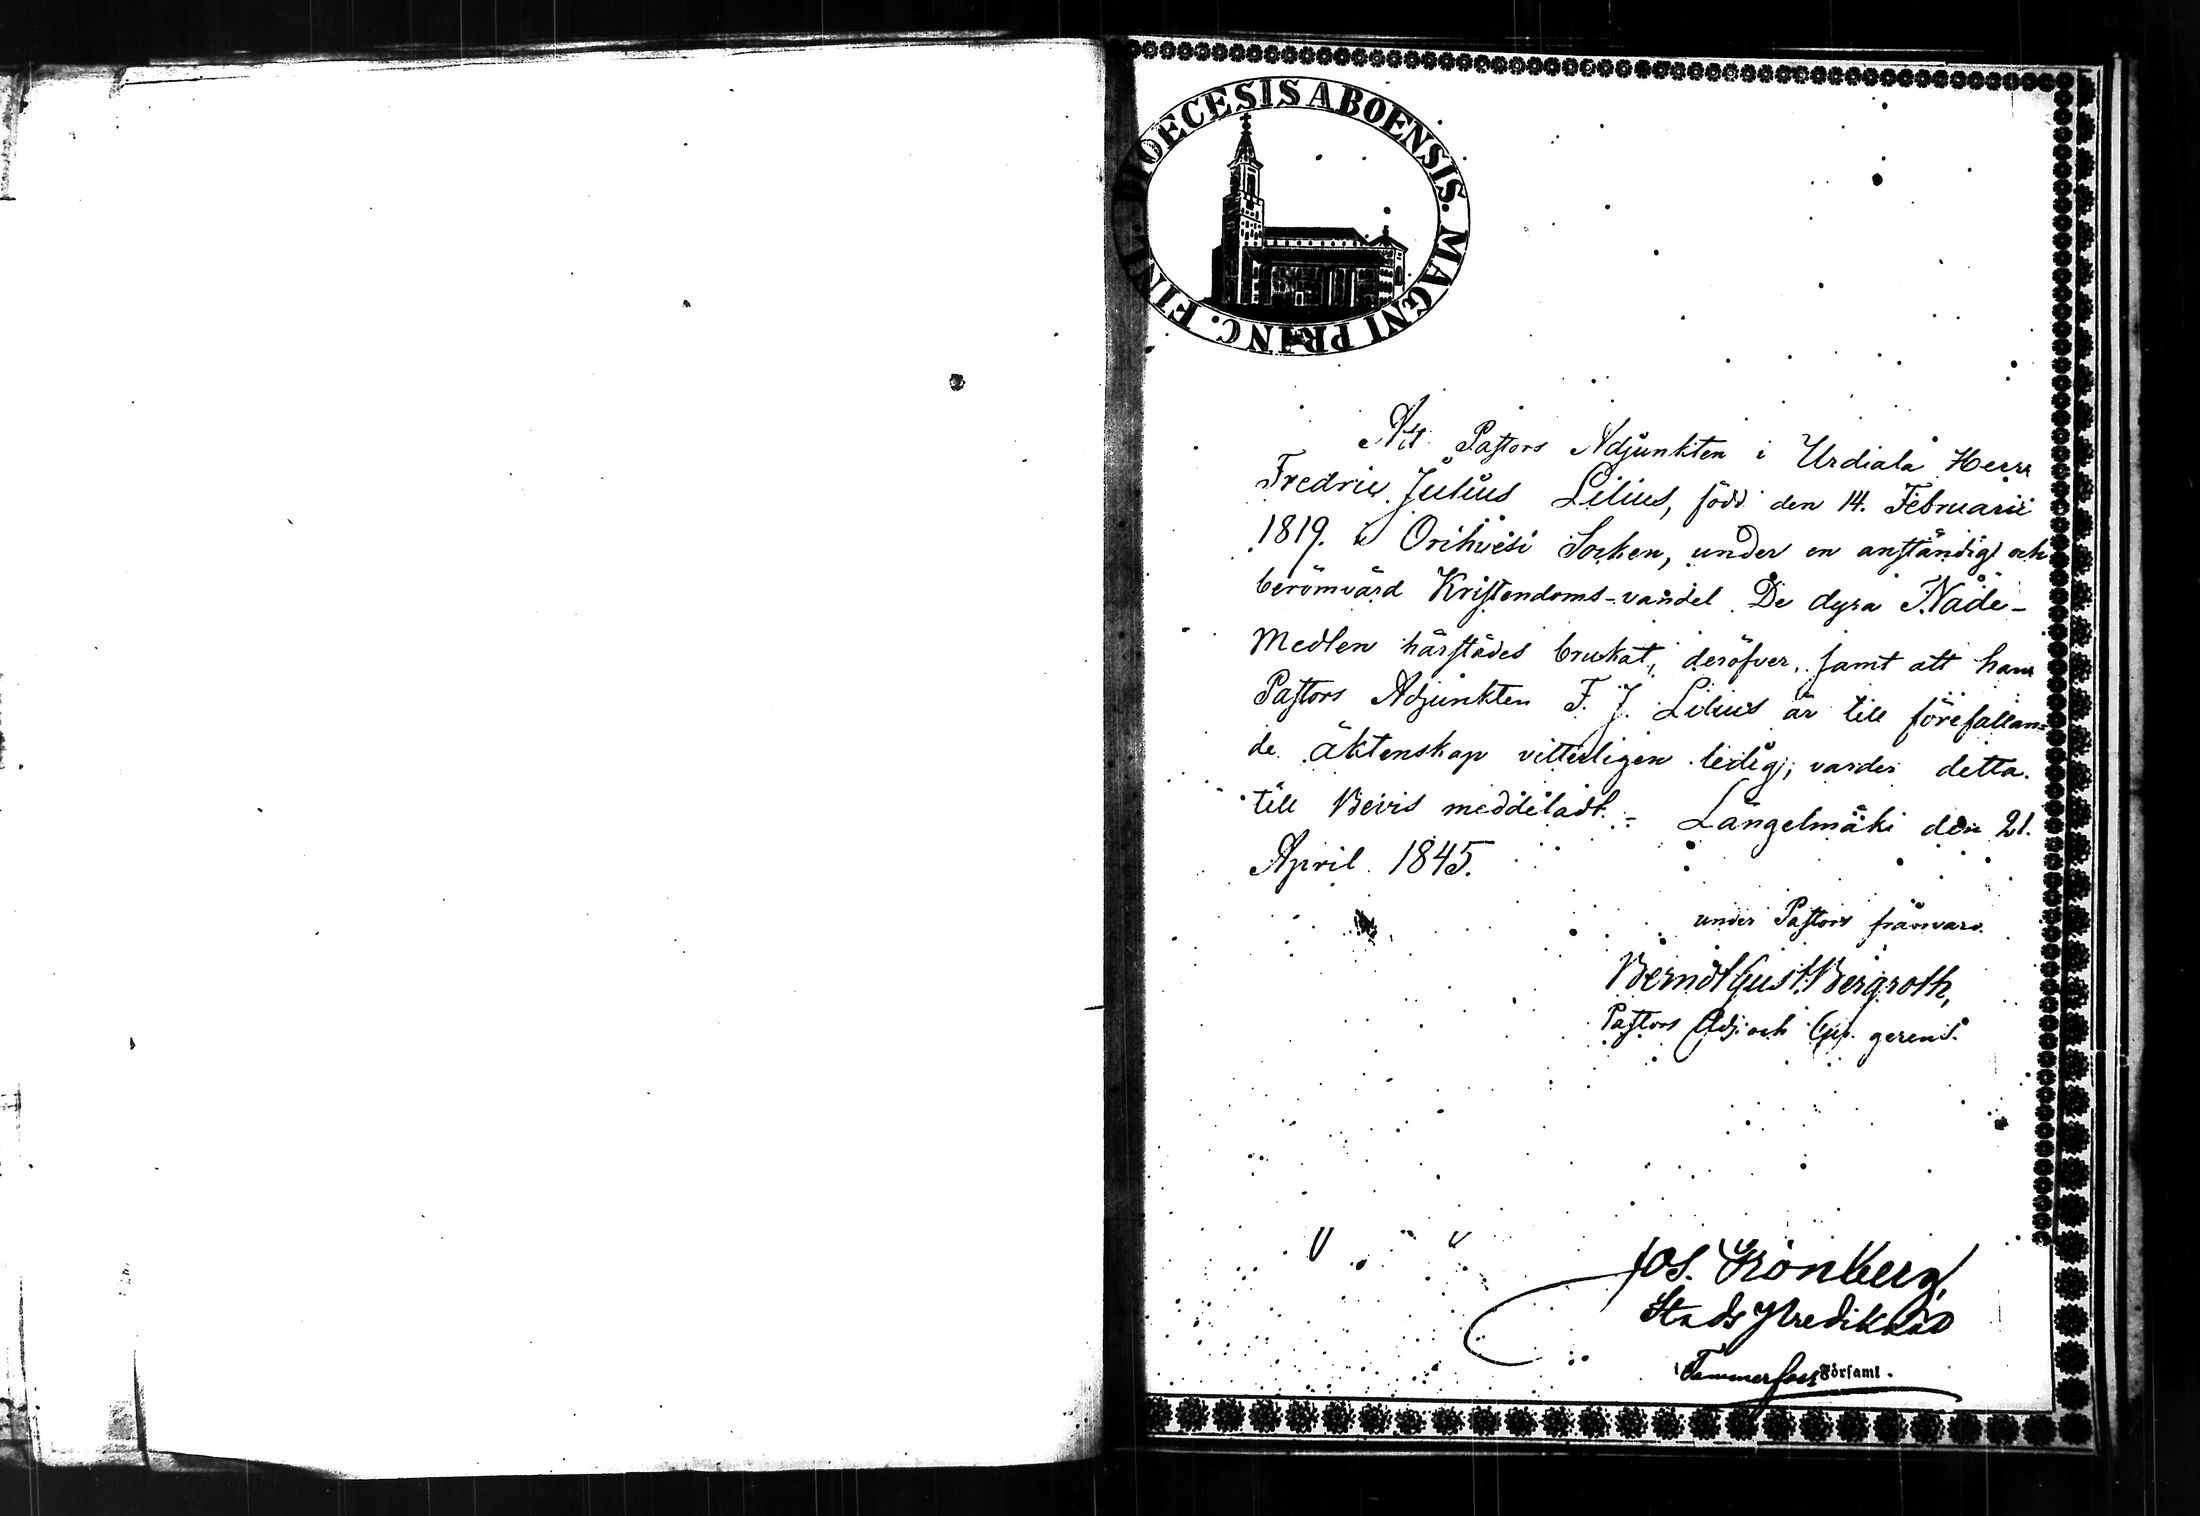 DIOECESIS ABOENSIS. MAGNI PRINC. FINL.
Att Pastors Adjunkten i Urdiala Herr
Fredric Julius Lilius, född den 14. Februarii
1819. i Orihvesi Socken, under en anständig och
berömvärd Kristendoms-vandel De dyra Nåde-
Medlen härstädes brukat, deröfver, samt att han
Pastors Adjunkten F. J. Lilius är till förefallan=
de äktenskap vitterligen ledig; varder detta
till Bevis meddeladt. = Längelmäki den 21.
April 1845.
under Pastors frånvaro.
Berndt Gust. Bergroth,
Pastors Adj. och Cap. gerens.
Jos. Grönberg,
Stads Predikant
Tammerfors Församl.